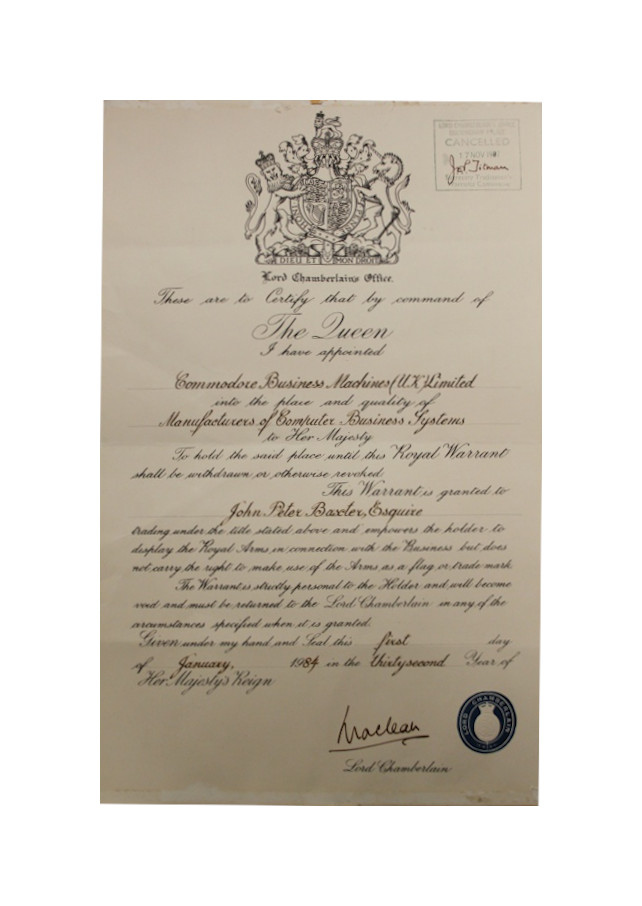 CANCELLED
12 NOV
DIEU ET MON DROIT
Lord Chamberlain's Office.
These are to Certify that by command of
The Queen
I have appointed
Commodore Business Machines (UK) Limited
into the place and quality of
Manufacturers of Computer Business Systems
to Her Majesty
To hold the said place until this Royal Warrant
shall be withdrawn or otherwise revoked
This Warrant is granted to
John Peter Baxter, Esquire
trading under the title stated above and empowers the holder to
display the Royal Arms in connection with the Business but does
not carry the right to make use of the Arms as a flag or trade mark
The Warrant is strictly personal to the Holder and will become
void and must be returned to the Lord Chamberlain in any of the
circumstances specified when it is granted
Given under my hand and Seal this first day
of January, 1984 in the thirty second Year of
Her Majesty's Reign
Maclean
LORD CHAMBERLAIN
Lord Chamberlain